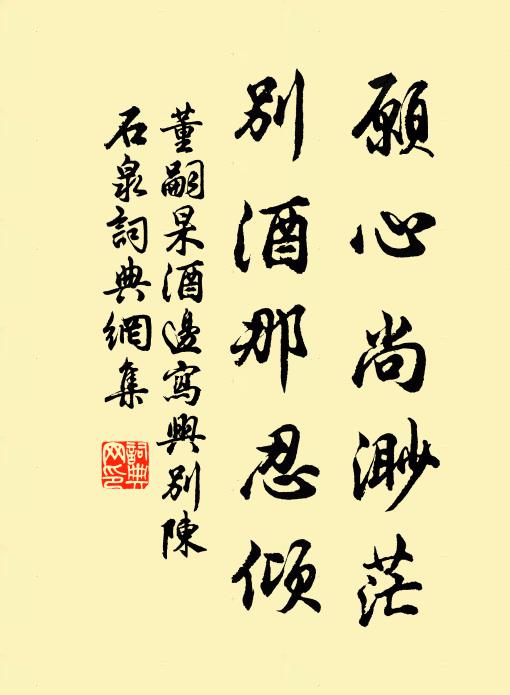 願心尚渺茫
別酒那忍傾
董嗣杲酒邊寫興別陳
石泉詞典網集
詞典
网印